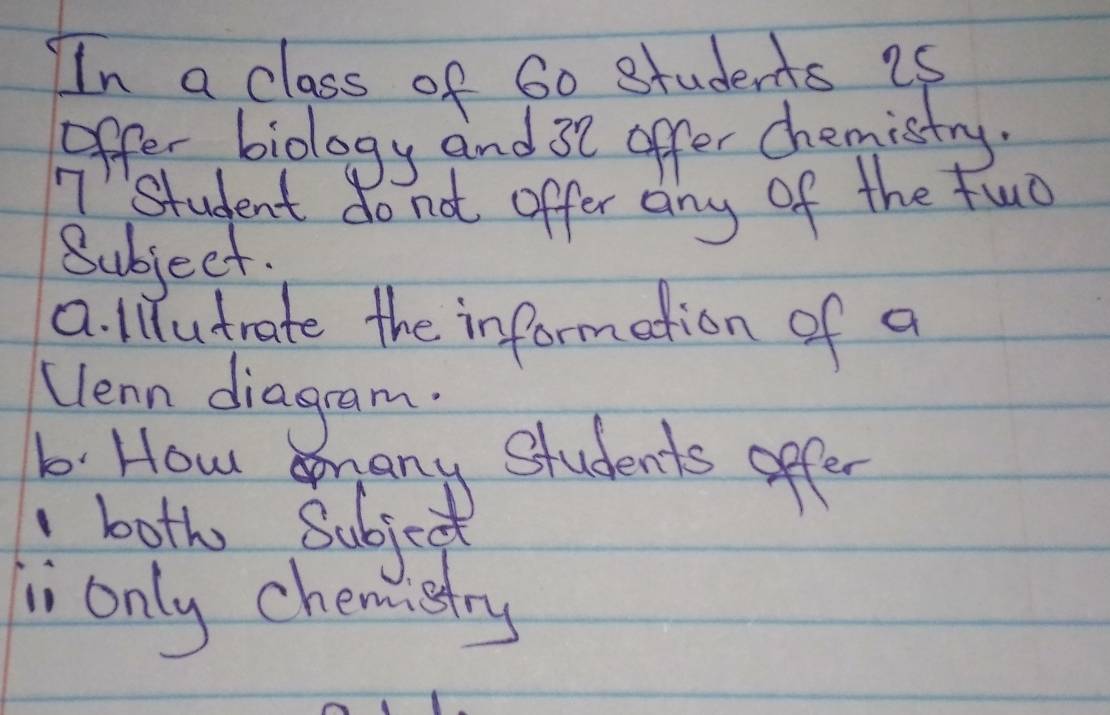 In a class of 60 Students 25
offer biology and 32 offer Chemistry.
7 Student do not offer any of the two
Subject.
a. Illutrate the information of a
Venn diagram.
b. How many Students offer
i both Subject
ii only Chemistry